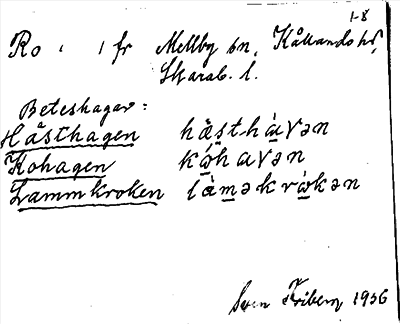 1-8
Ro 1 fr Mellby sn, Kållands hd,
Skarab. l.
Beteshagar:
Hästhagen hästhàvən
Kohagen kóhavən
Lammkroken làməkràkən
Sven Friberg 1936